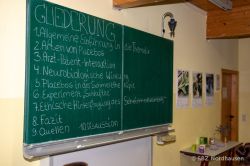 GLIEDERUNG
1. Allgemeine Einführung in die Thematik
2. Arten von Placebos
3. Arzt-Patient-Interaktion
4. Neurobiologische Wirkung
5. Placebos in der
6. Experiment
7. Ethische Hinterfragung des
8. Fazit
9. Quellen 10. Diskussion
© EBZ Nordhausen